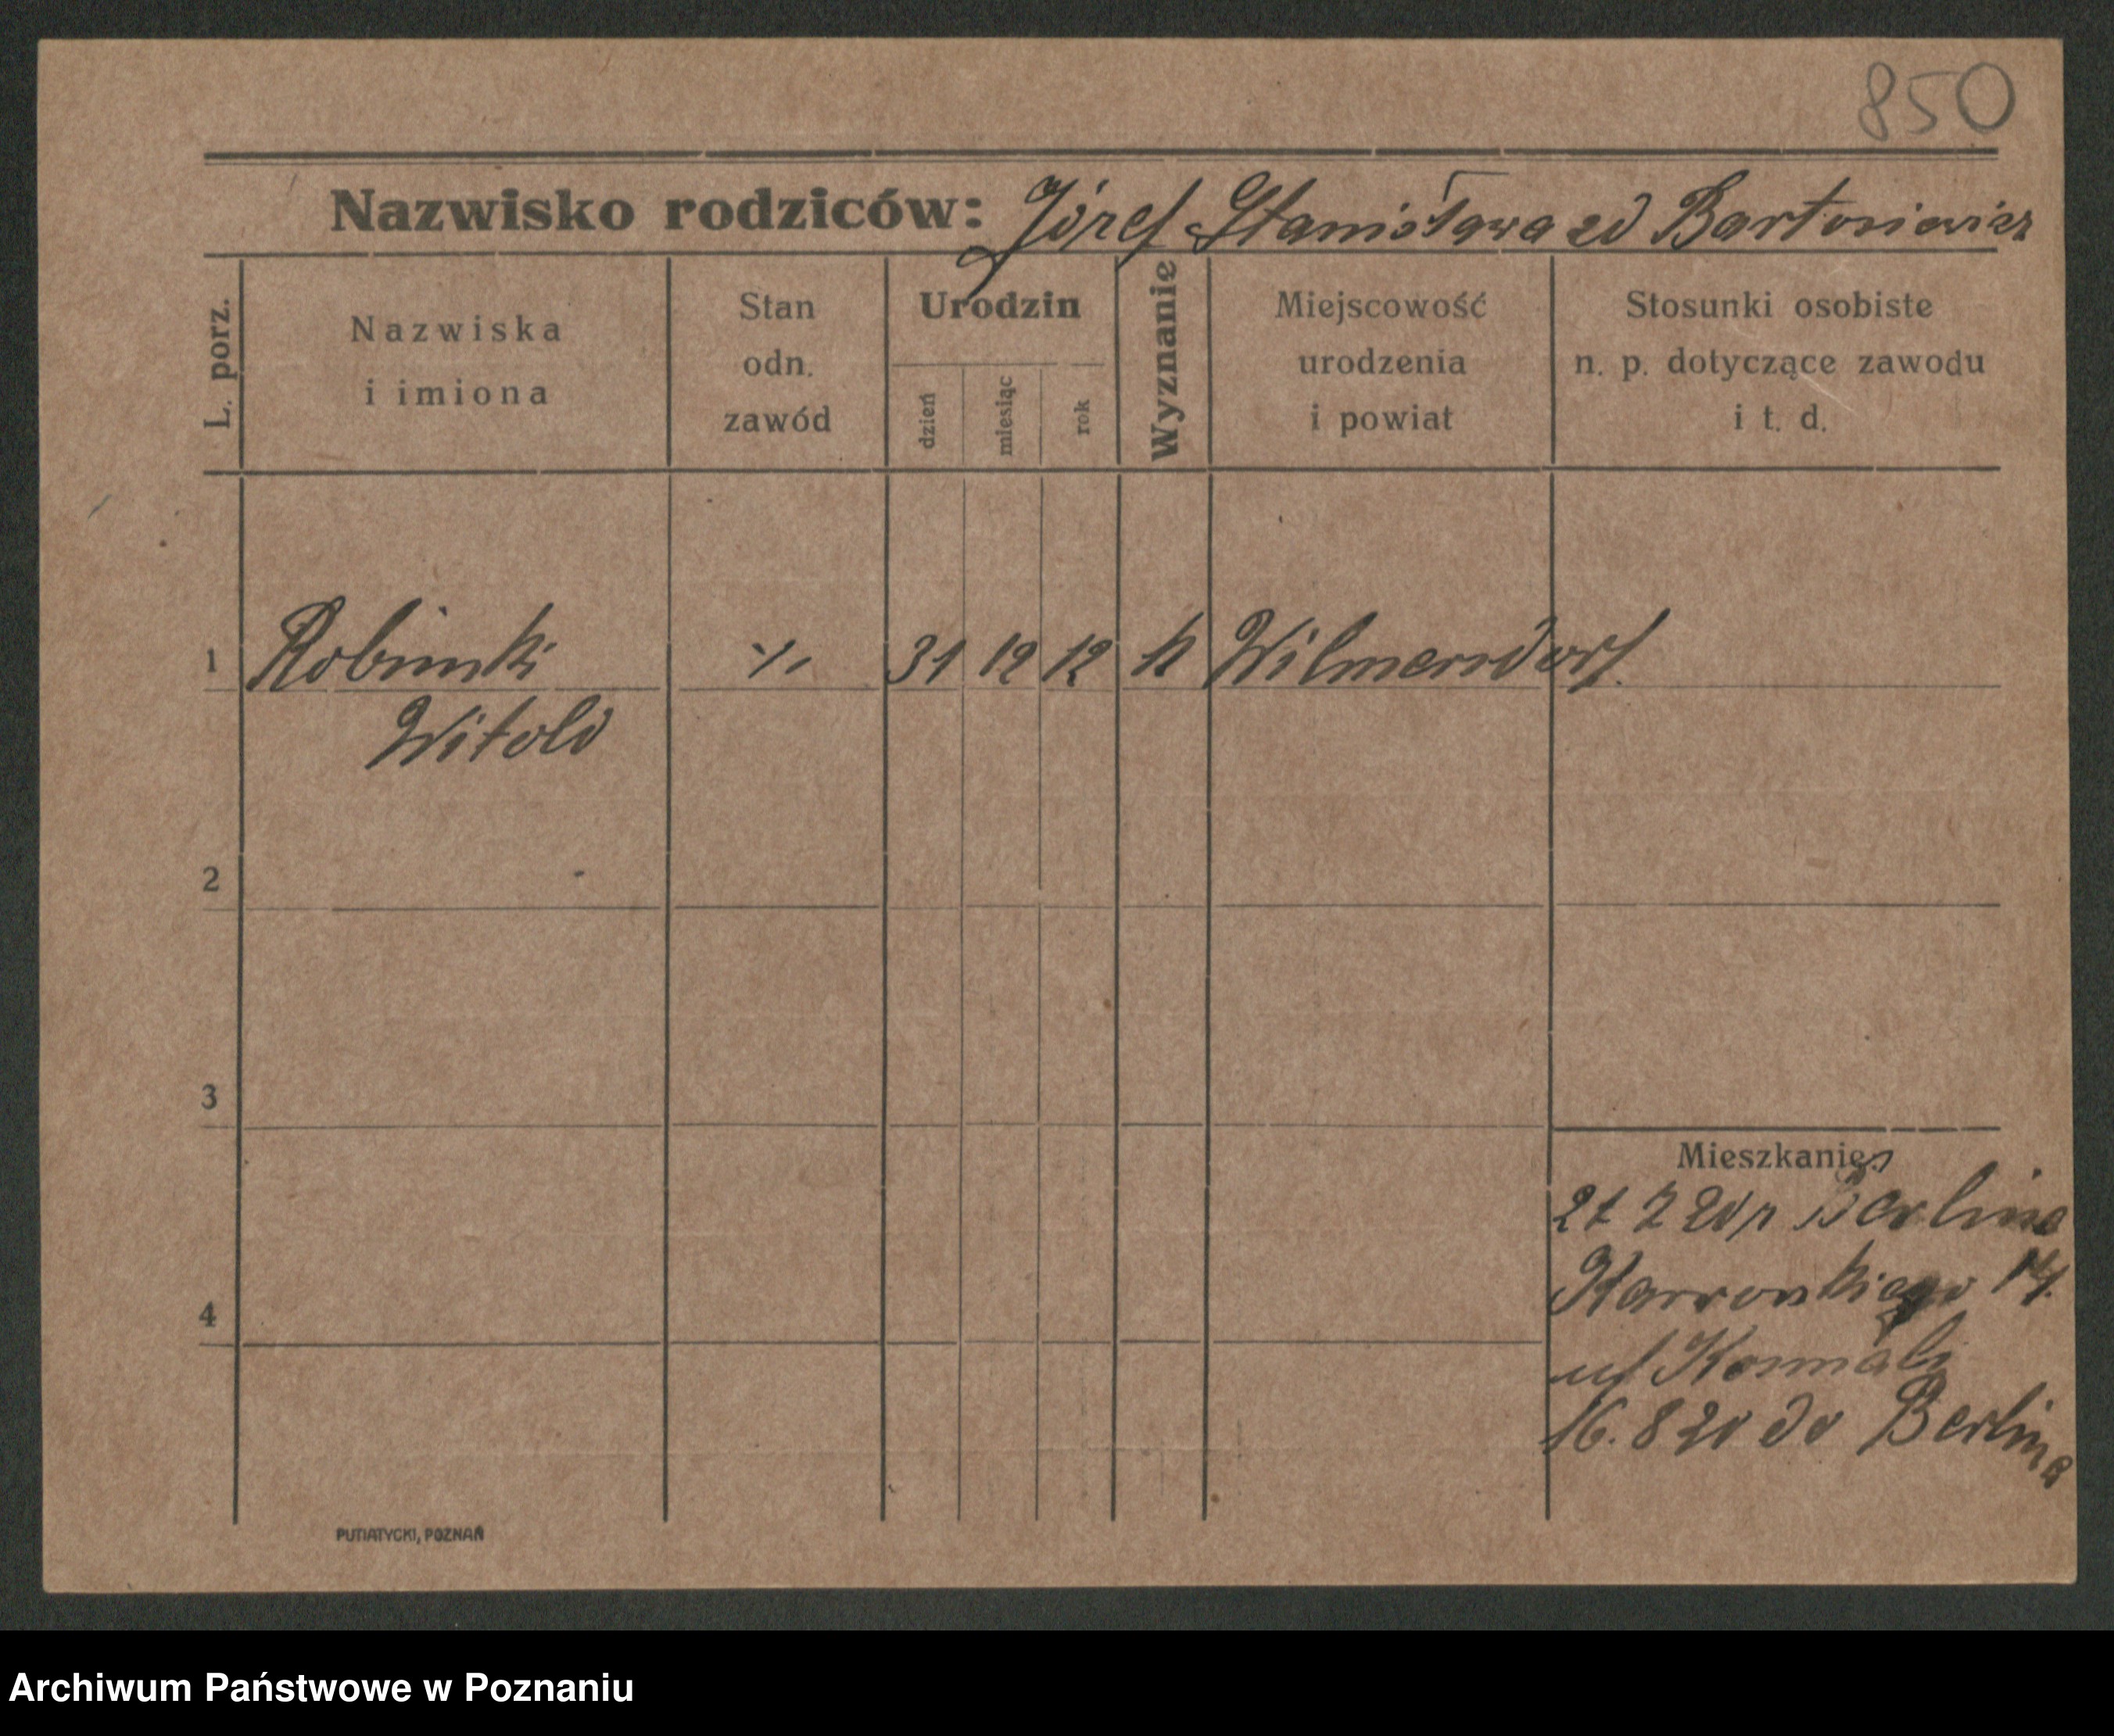 850
Nazwisko rodziców: Józef Stanisława zd Bartosiewicz
L. porz.
Nazwiska
i imiona
Stan
odn.
zawód
Urodzin
dzień
miesiąc
rok
Wyznanie
Miejscowość
urodzenia
i powiat
Stosunki osobiste
n. p. dotyczące zawodu
i t. d.
1 Robinski 31 12 12 k Wilmersdorf.
Witold
2
3
Mieszkanie:
21 7 20 z Berlina
4
14.
u/
16. 8 20 do Berlina
PUTIATYCKI, POZNAŃ
Archiwum Państwowe w Poznaniu